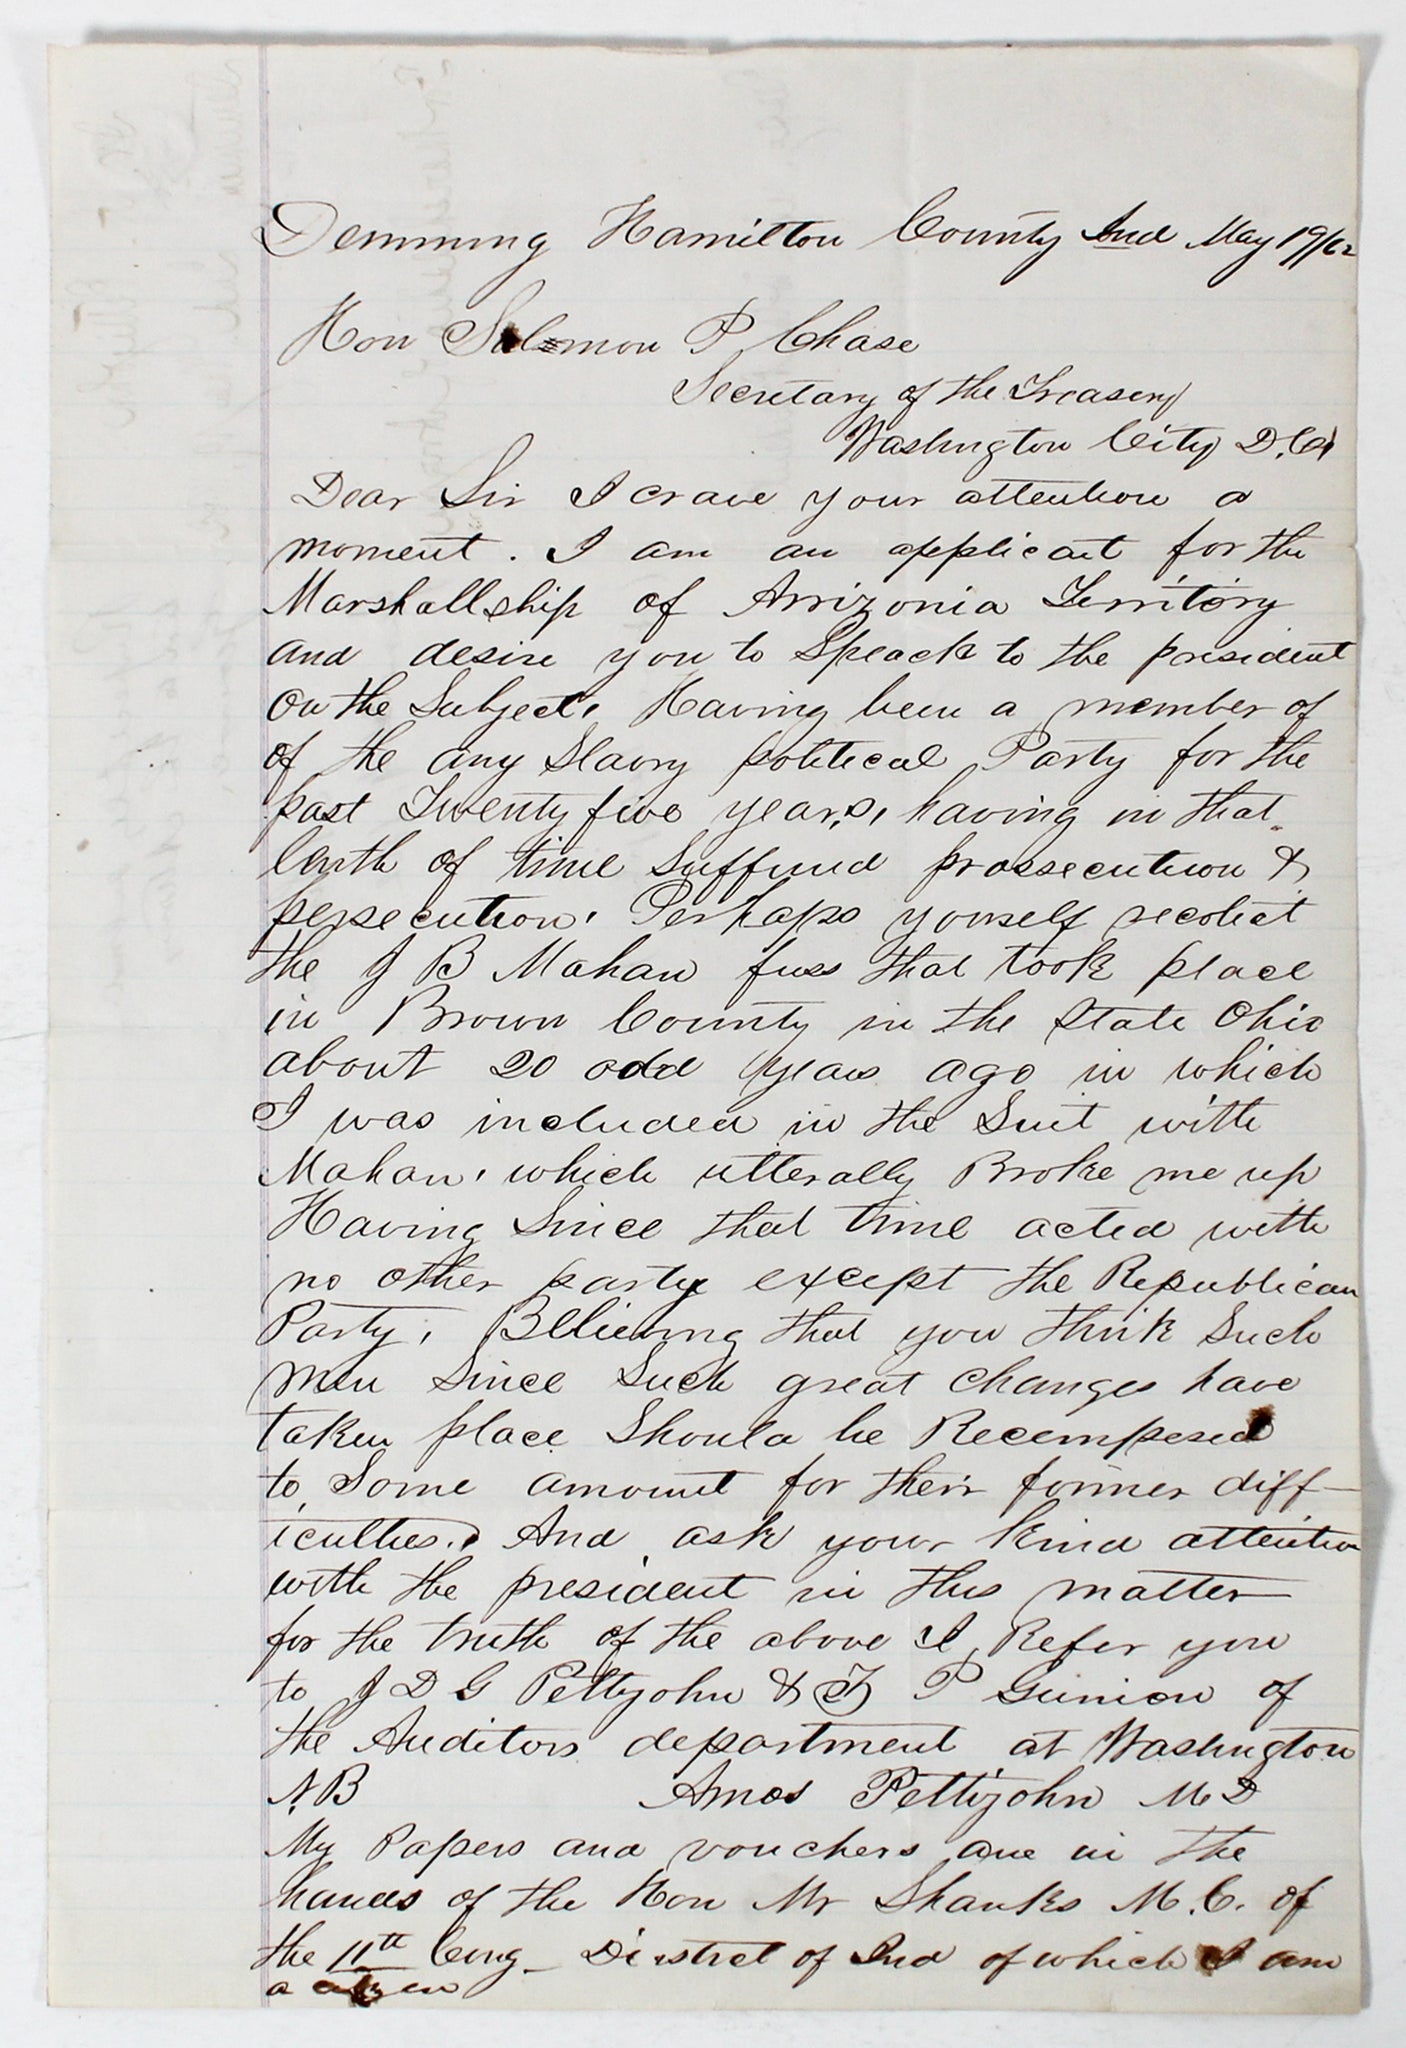 Demming Hamilton County Ind May 19/62
Hon Salomon P Chase
Secretary of the Treasury
Washington City D.C.
Dear Sir I crave your attention a
moment. I am an applicant for the
Marshallship of Arrizonia Territory
and desire you to Speack to the president
on the Subject, Having been a member of
of the any Slavry political Party for the
past Twenty five years, having in that
lenth of time Suffered prossecution &
persecution. Perhaps yourself recolect
the J B Mahan fuss that took place
in Brown County in the State Ohio
about 20 odd years ago in which
I was included in the Suit with
Mahan, which utterally Broke me up
Having Since that time acted with
no other party except the Republican
Party, Believing that you think Such
men Since Such great changes have
taken place Should be Recompesed
to Some amount for their former diff-
iculties. And ask your kind attention
with the president in this matter
for the truth of the above I Refer you
to J D G Pettyjohn & T P Gunion of
the Auditors department at Washington
N.B Amos Pettijohn M D
My Papers and vouchers are in the
hands of the Hon Mr Shanks M.C. of
the 11th Cong- Distret of Ind of which I am
a citizen